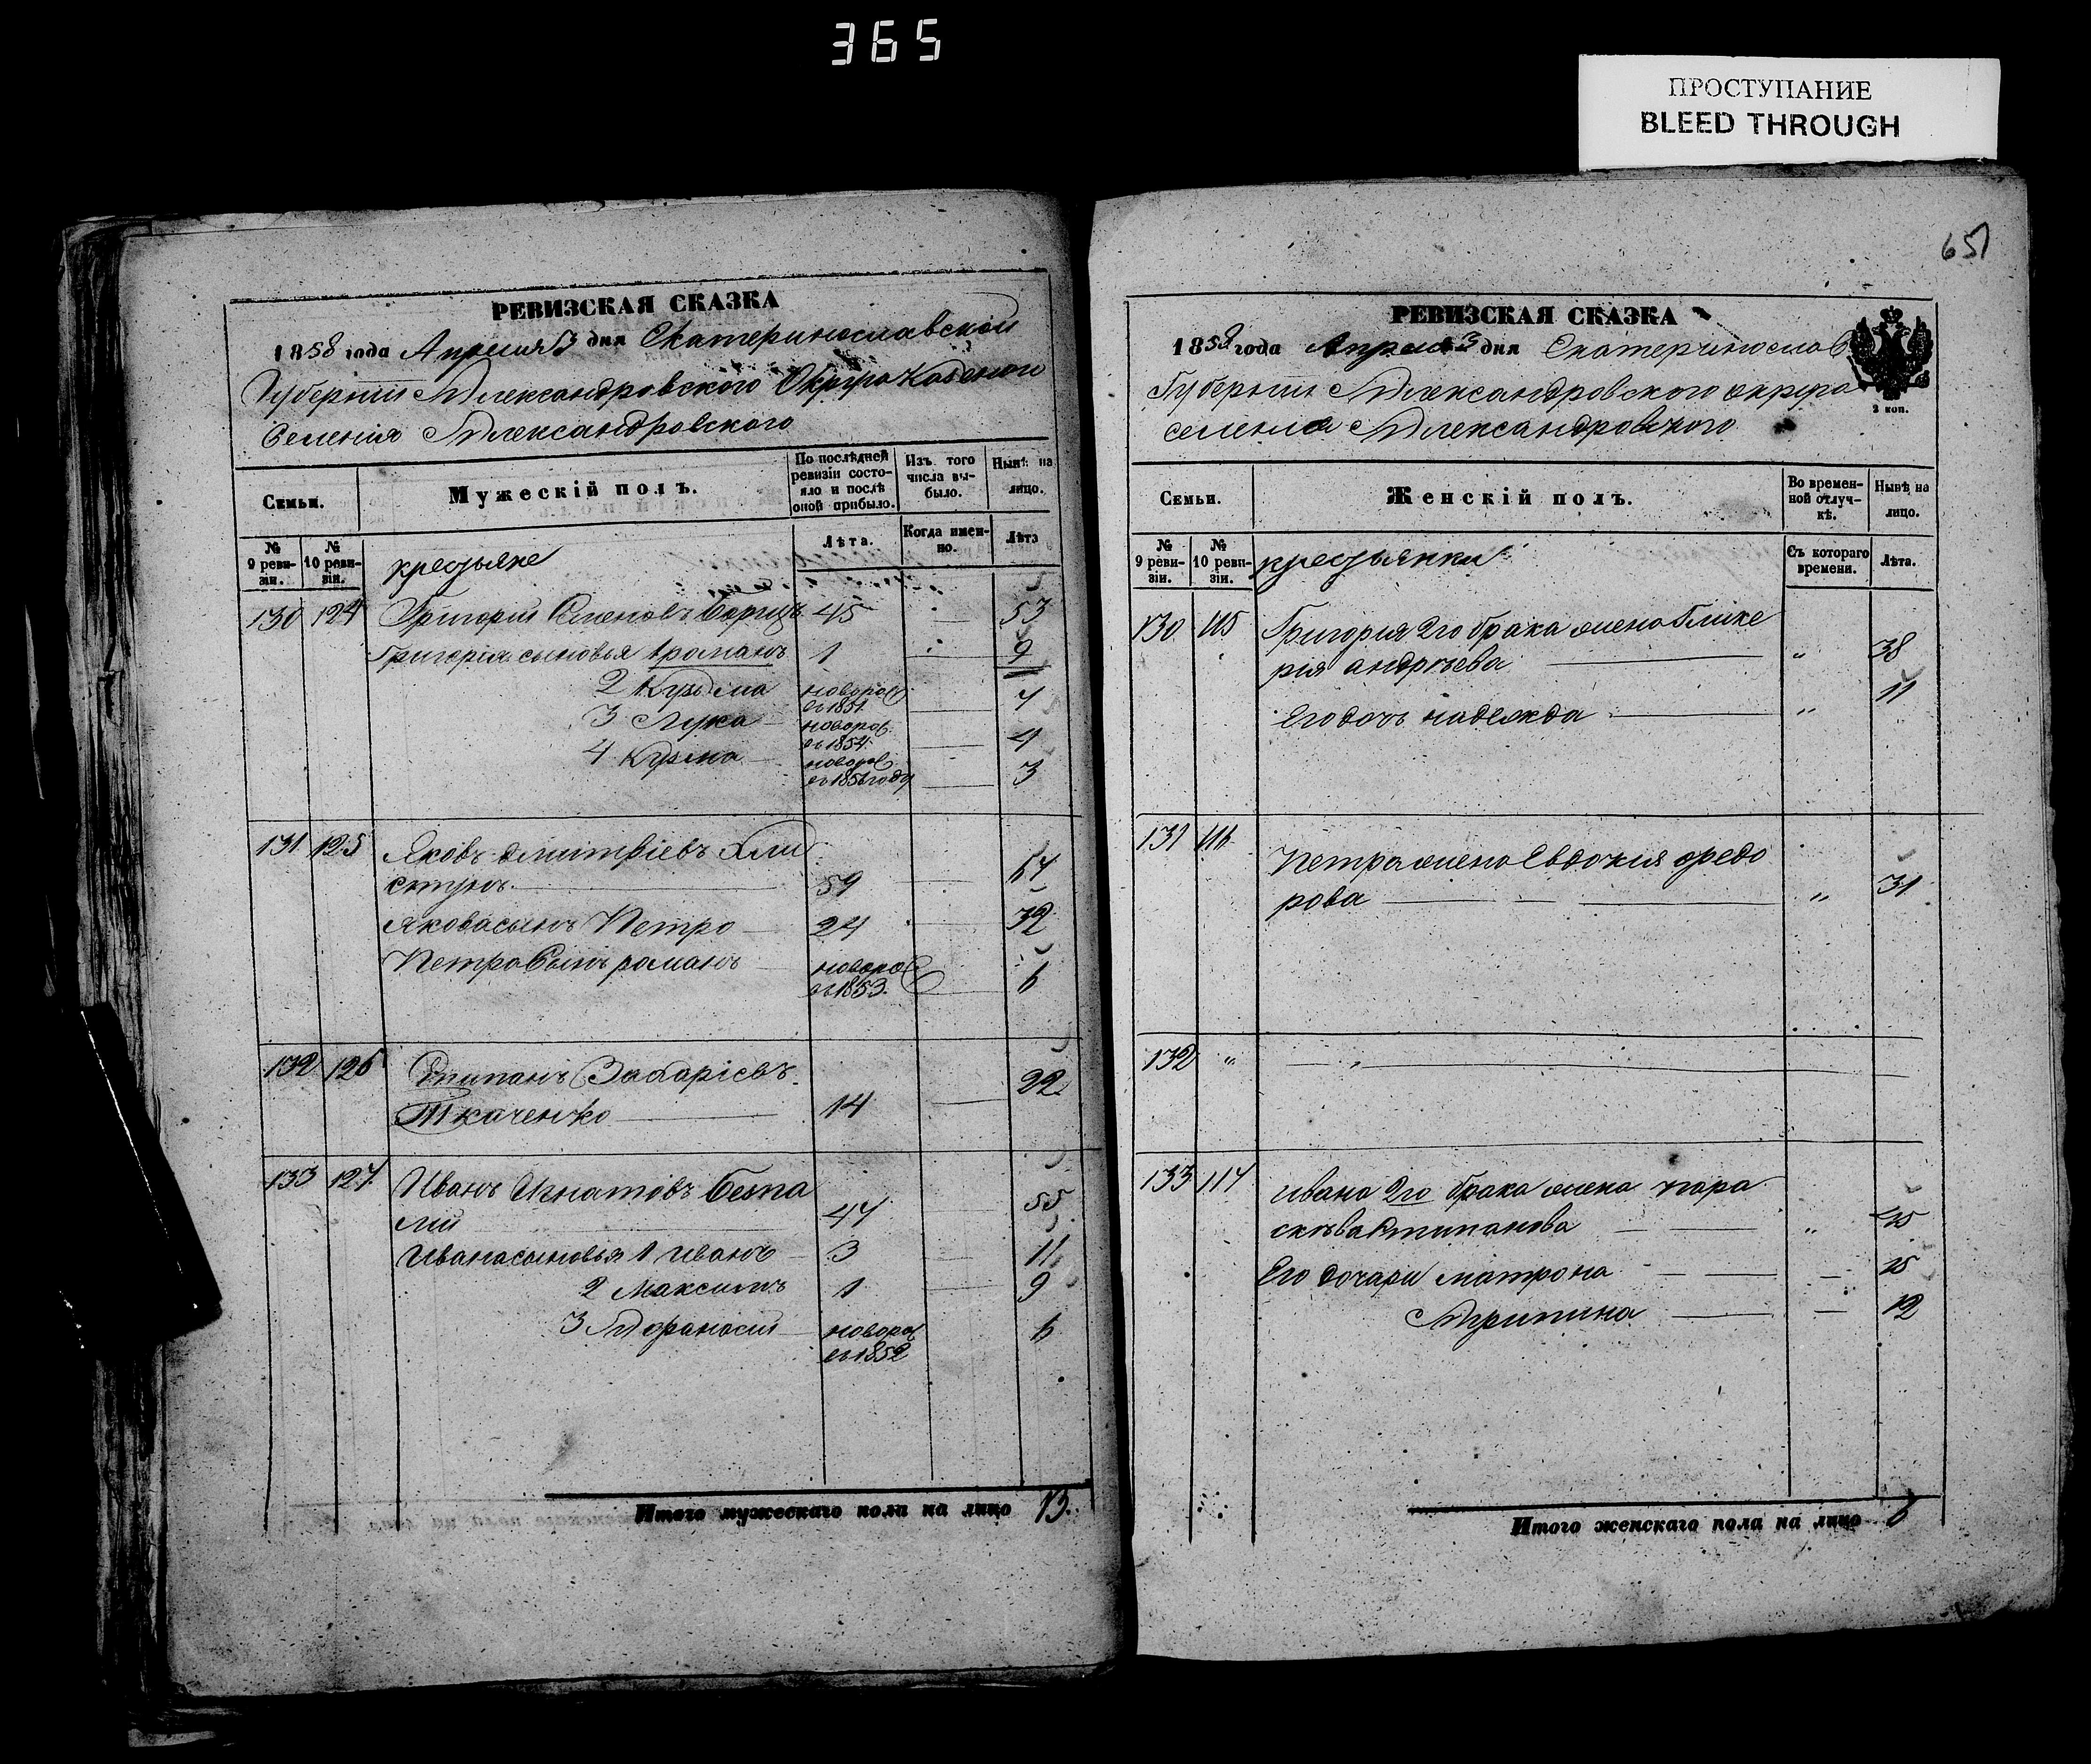 365
ПРОСТУПАНИЕ
BLEED THROUGH
РЕВИЗСКАЯ СКАЗКА
1858 года Апреля 3 дня Екатеринославской
Губернiи Александровского Округа Казеннои
Селенiя Александровского
Семьи.
Мужескiй полъ.
По послѣдней ревизiи состояло и послѣ оной прибыло.
Изъ того числа выбыло.
Нынѣ на лицо.
№ 9 ревизiи.
№ 10 ревизiи.
крестьяне
Лѣта.
Когда именно.
Лѣта
130 124 Григорiй Семеновъ 45 53
Григорiя сыновья 1 романъ 1 9
2 Кузьма новорож. въ 1851. 7
3 Лука новорож. въ 1854. 4
4 Кузма новорож. въ 1856 году 3
131 125 Яковъ Дмитрiевъ Хли
стунъ. 59 67
Якова сынъ Петро 24 32
Петра Сынъ романъ новорож въ 1853. 6
132 126 Степанъ Захарiевъ
Ткаченко 14 22
133 127. Иванъ Игнатовъ Беспа
лiй 47 55
Ивана сыновья 1 иванъ 3 11
2 Максимъ 1 9
3 Афанасiй новорож въ 1852 6
Итого мужескаго пола на лицо 13.
651
РЕВИЗСКАЯ СКАЗКА
1858 года Апреля 3 дня Екатеринослав
Губернiи Александровского округа
селенiя Александровского
3 коп.
Семьи.
Женскiй полъ.
Во временной отлучкѣ.
Нынѣ на лицо.
№ 9 ревизiи.
№ 10 ревизiи.
крестьянки
Съ котораго времени.
Лѣта.
130 115 Григория 2го брака жена Глике
рия андрѣева " 38
Его дочь надежда " 11
131 116 Петра жена Евдокия федо
рова " 31
132 "
133 117 ивана 2го брака жена пара
скѣва Степанова " 45
Его дочари матрона 15
Агрипина 12
Итого женскаго пола на лицо 6